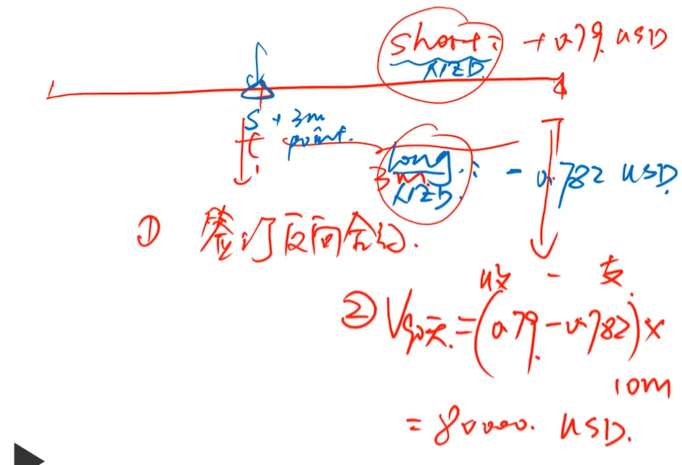 short: +0.79. USD
NZD
S + 3m
t point.
long : - 0.782 USD.
3m.
NZD.
T
① 签订反向合约.
收 - 支.
② V90天. = (0.79 - 0.782) ×
10m
= 80000. USD.